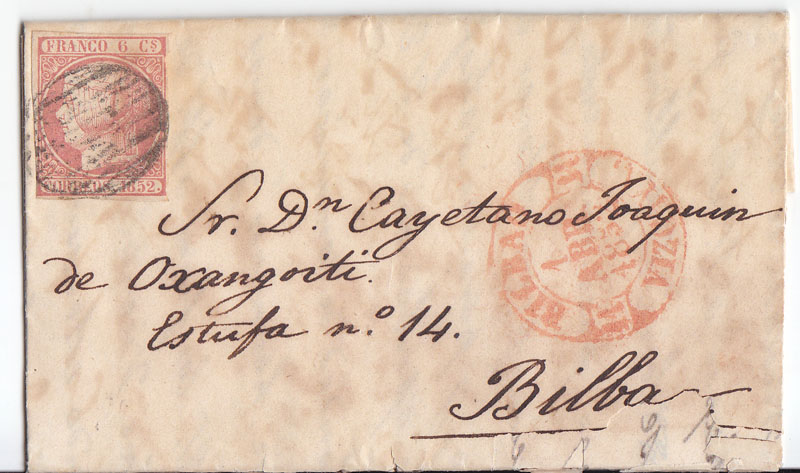 FRANCO 6 Cs
CORREOS 1852.
Sr. Dn Cayetano Joaquin
de Oxangoiti.
Estufa n.º 14.
Bilbao
BILBAO
VIZCAYA
ABR